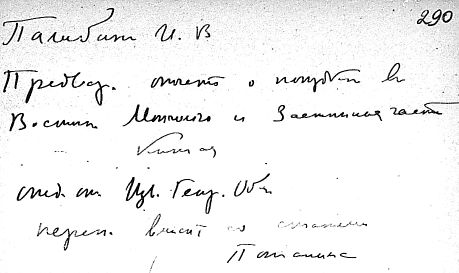 290
Палибин И. В
Предвар. отчетъ о поездке въ
Восточн. Монголию и Застенная части
Китая
отд. от Изв. Геогр. Общ
переп. вместе со статьей
Потанина